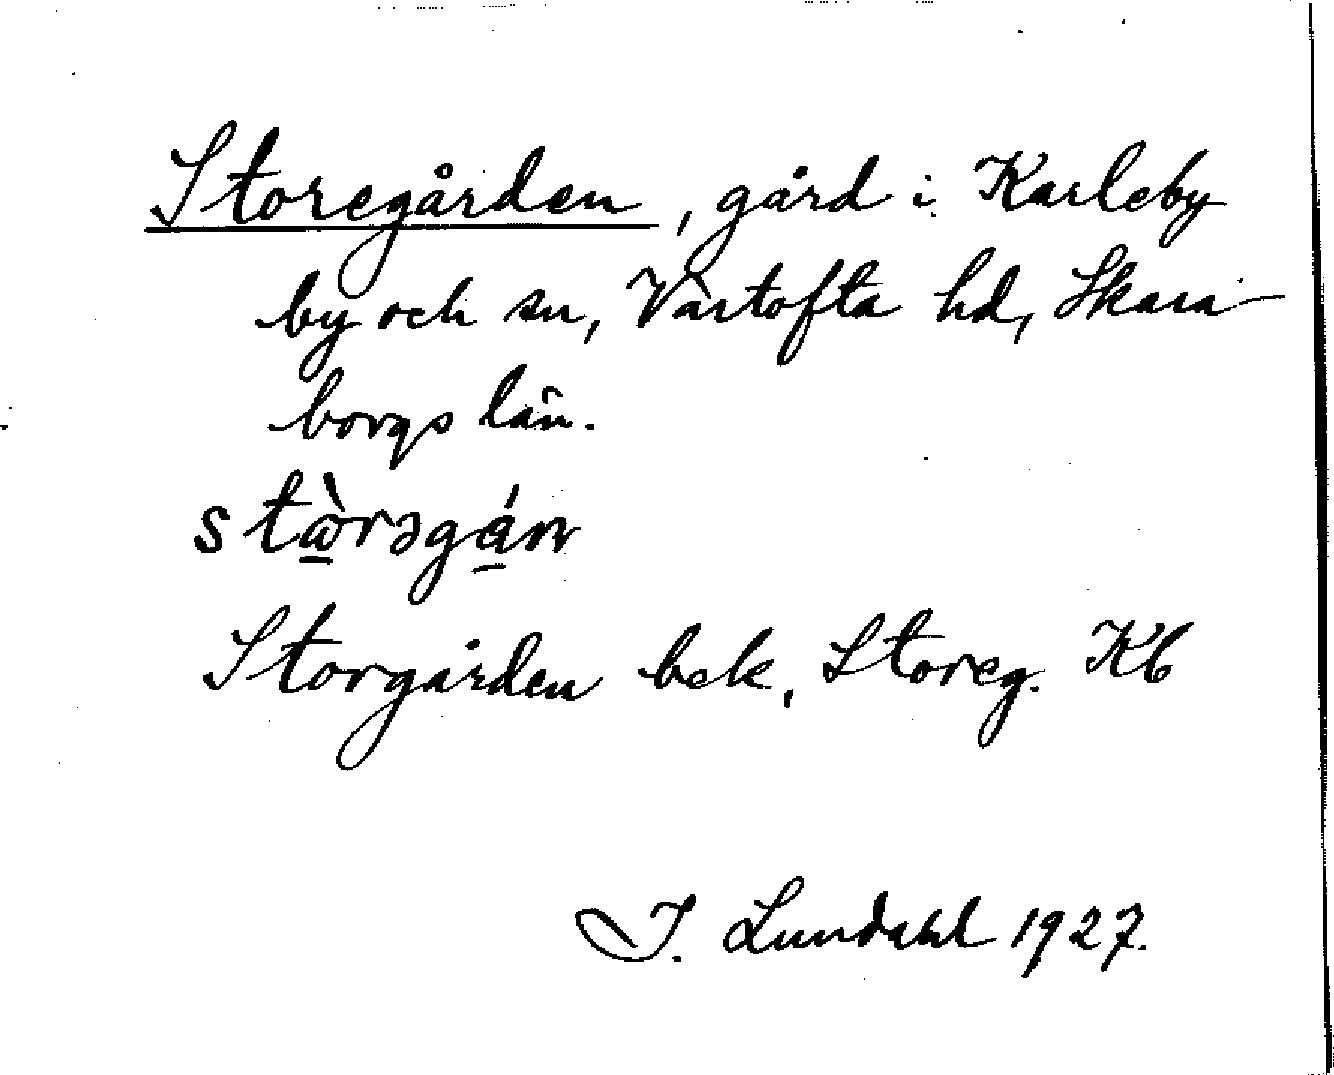 Storegården, gård i Karleby
by och sn, Vartofta hd, Skara-
borgs län.
stɷ̀rəgɑ́ṇ
Storgården bek. Storeg. Kb
I. Lundahl 1927.